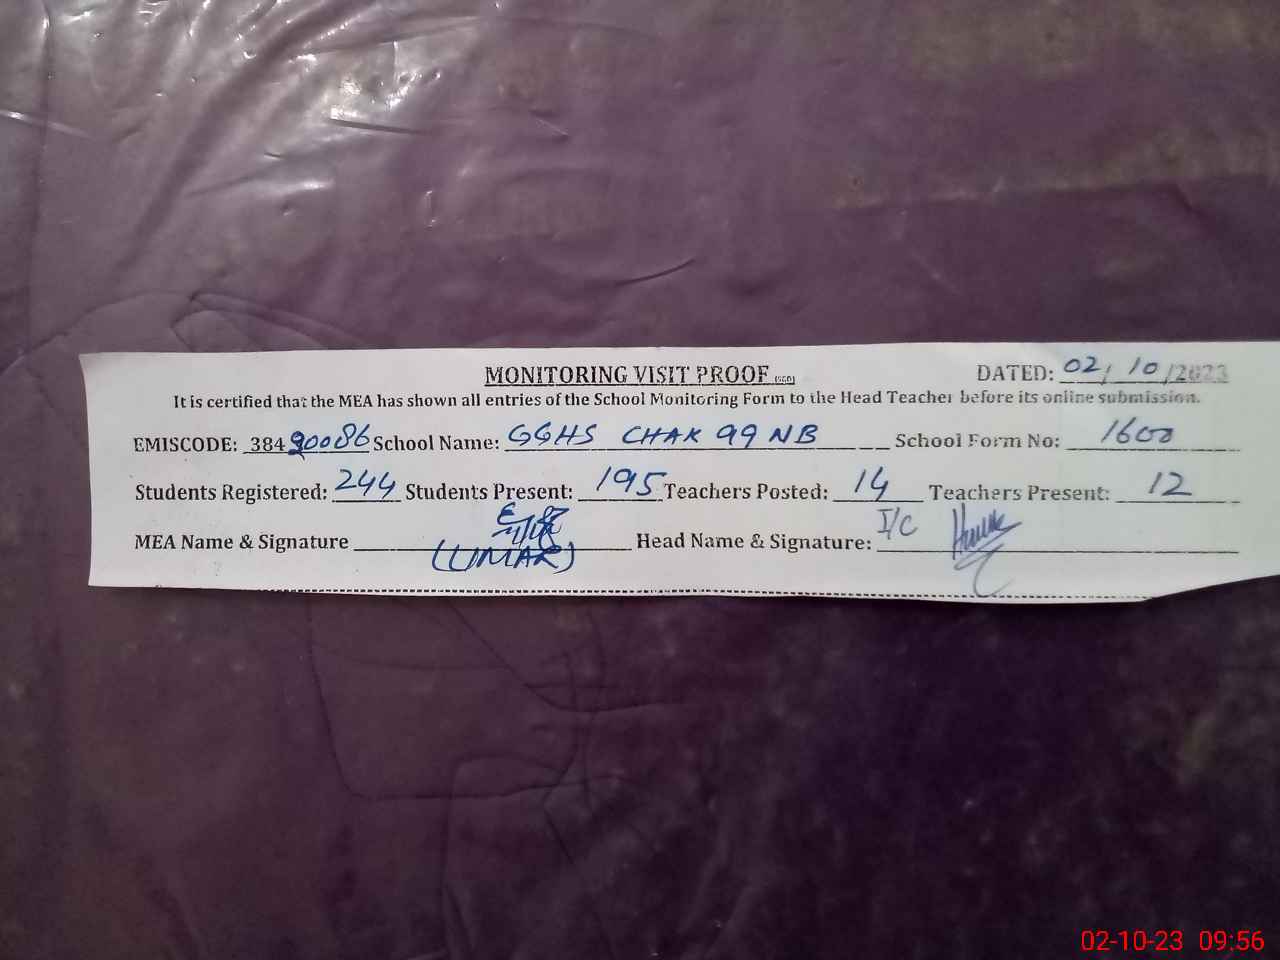 MONITORING VISIT PROOF DATED: 02/10/2023
It is certified that the MEA has shown all entries of the School Monitoring Form to the Head Teacher before its online submission.
EMISCODE: 38490086 School Name: GGHS CHAK 99 NB School Form No: 1600
Students Registered: 244 Students Present: 195 Teachers Posted: 14 Teachers Present: 12
MEA Name & Signature (UMAR) Head Name & Signature: I/C
02-10-23 09:56